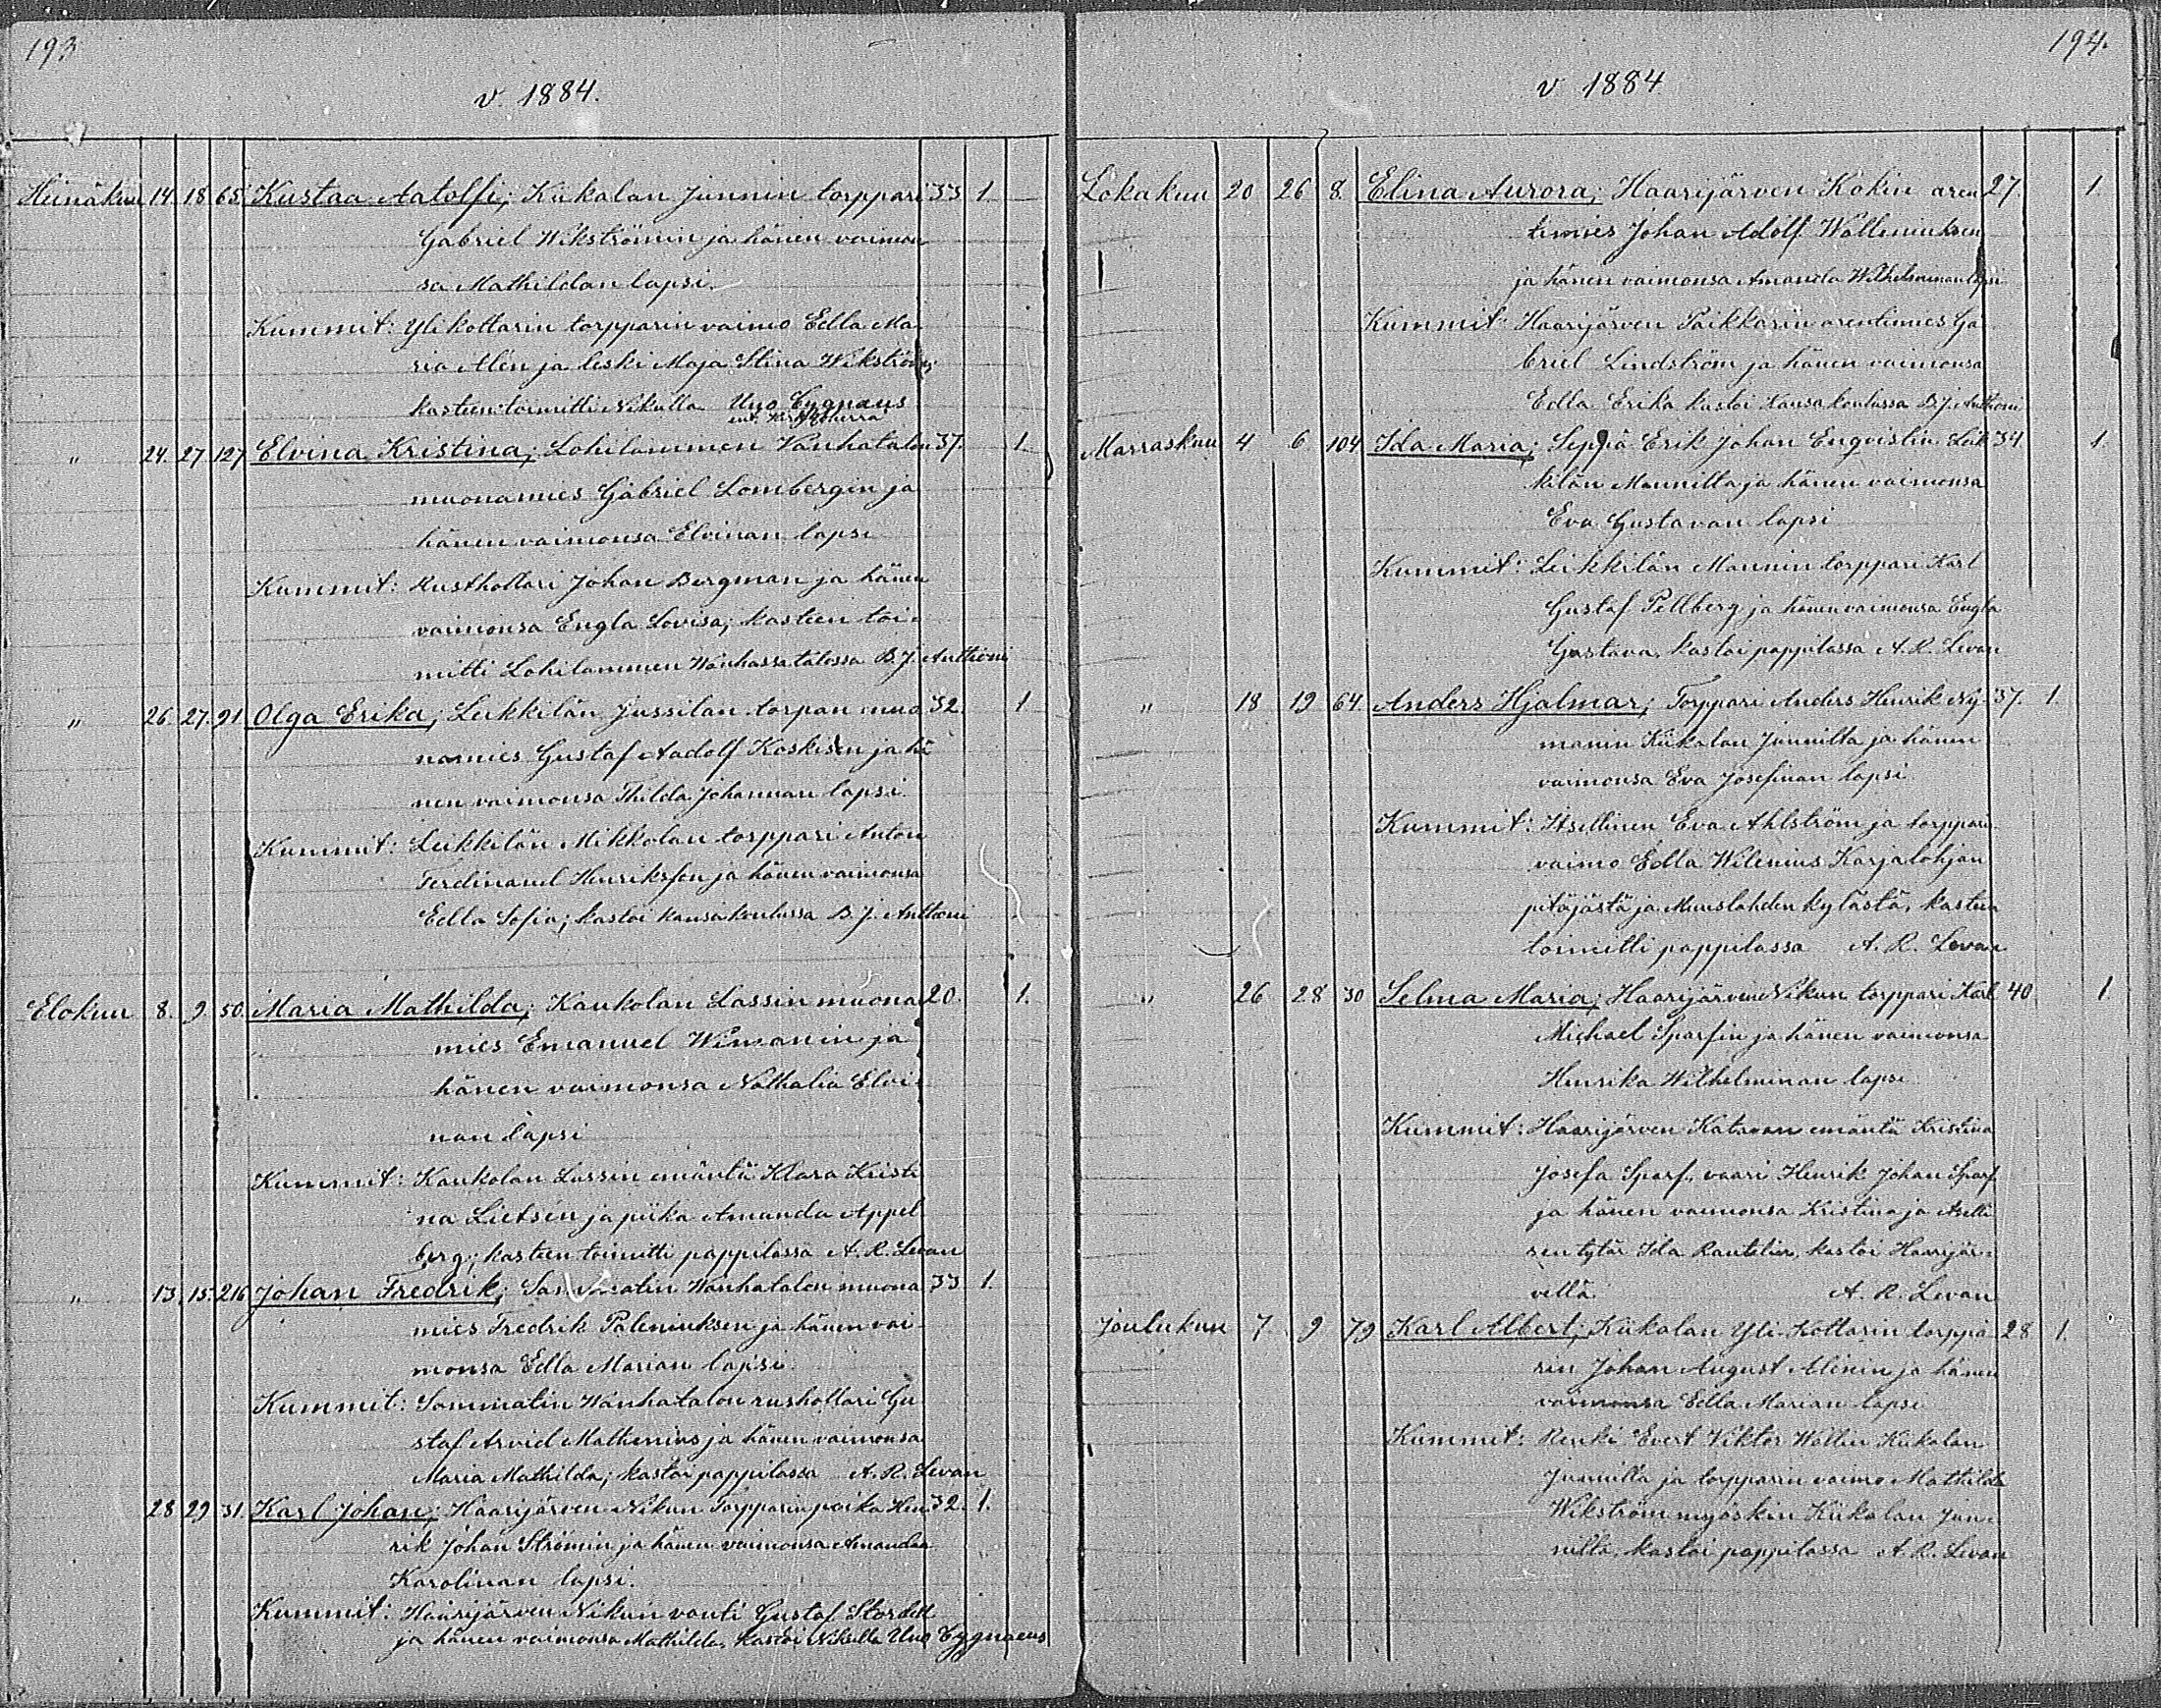 193
v. 1884.
Heinäkuu 14. 18. 65. Kustaa Aatolfi; Kiikalan Junnin torppari 33 1.
Gabriel Wikströmin ja hänen vaimon
sa Mathildan lapsi.
Kummit: Yli kottarin torpparin vaimo Edla Ma
ria Alén ja leski Maja Stina Wikström;
kasteen toimitti Nikulla Uno Cygnæus
" 24. 27. 127 Elvina Kristina; Lohilammen Vanhatalon 37. 1.
muonamies Gabriel Lombergin ja
hänen vaimonsa Elvinan lapsi
Kummit: Rusthollari Johan Bergman ja hänen
vaimonsa Engla Lovisa; kasteen toi-
mitti Lohilammen Wanhassatalossa B. J. Anthoni
" 26. 27. 91 Olga Erika; Leikkilän Jussilan torpan muo 32. 1
namies Gustaf Aadolf Koskisen ja hä
nen vaimonsa Thilda Johannan lapsi.
Kummit: Leikkilän Mikkolan torppari Anton
Ferdinand Henriksson ja hänen vaimonsa
Edla Sofia; kastoi kansakoulussa B. J. Anthoni
Elokuu 8. 9 50. Maria Mathilda; Kaukolan Lassin muona 20. 1.
mies Emanuel Wimanin ja
hänen vaimonsa Nathalia Elvi-
nan lapsi
Kummit: Kaukolan Lassin emäntä Klara Kristi
na Lietsén ja piika Amanda Appel
berg; kasteen toimitti pappilassa A. R. Levan
" 13. 15. 216 Johan Fredrik; Wanhatalon muona 33 1.
mies Fredrik Paleniuksen ja hänen vai-
monsa Edla Marian lapsi.
Kummit: Sammatin Wanhatalon rushollari Gu
staf Arvid Mathenius ja hänen vaimonsa
Maria Mathilda; kastoi pappilassa A. R. Levan
28 29 31. Karl Johan; Haarijärven Nikun Torpparin poika Hen 32. 1.
rik Johan Strömin ja hänen vaimonsa Amandan
Karolinan lapsi.
Kummit: Haarijärven Nikun vouti Gustaf Stordell
ja hänen vaimonsa Mathilda, kastoi Nikulla Uno Cygnaeus
194.
v 1884
Lokakuu 20 26 8. Elina Aurora; Haarijärven Kokin aren 27. 1
timies Johan Adolf Walleniuksen
ja hänen vaimonsa Amanda Wilhelminan lapsi
Kummit: Haarijärven Paikkarin arentimies Ga
briel Lindström ja hänen vaimonsa
Edla Erika kastoi Kansakoulussa B. J. Anthoni
Marraskuu 4 6 104 Ida Maria; Seppä Erik Johan Enqvistin Leik 34. 1
kilän Mannilla ja hänen vaimonsa
Eva Gustavan lapsi
Kummit: Leikkilän Mannin torppari Karl
Gustaf Pellberg ja hänen vaimonsa Engla
Gustava, kastoi pappilassa A. R. Levan
" 18 19 64. Anders Hjalmar; Torppari Anders Henrik Ny- 37. 1.
manin Kiikalan Junnilla ja hänen
vaimonsa Eva Josefinan lapsi
Kummit: Itsellinen Eva Ahlström ja torppari
vaimo Edla Wilenius Karjalohjan
pitäjästä ja kylästä, kasteen
toimitti pappilassa A. R. Levan
" 26 28 30 Selma Maria; Haarijärven Nikun torppari Karl 40 1
Michael Sparfin ja hänen vaimonsa
Henrika Wilhelminan lapsi
Kummit: Haarijärven Katavan emäntä Kristina
Josefa Sparf, vaari Henrik Johan Sparf
ja hänen vaimonsa Kristina ja
sen tytär Ida Rautelin, kastoi Haarijär-
vellä. A. R. Levan
Joulukuu 7. 9 79 Karl Albert; Kiikalan Yli-Kottarin torppa 28 1.
rin Johan August Alénin ja hänen
vaimonsa Edla Marian lapsi
Kummit: Renki Evert Viktor Wallin Kiikalan
Junnilla ja torpparin vaimo Mathilda
Wikström myöskin Kiikalan Jun-
nilla, kastoi pappilassa A. R. Levan